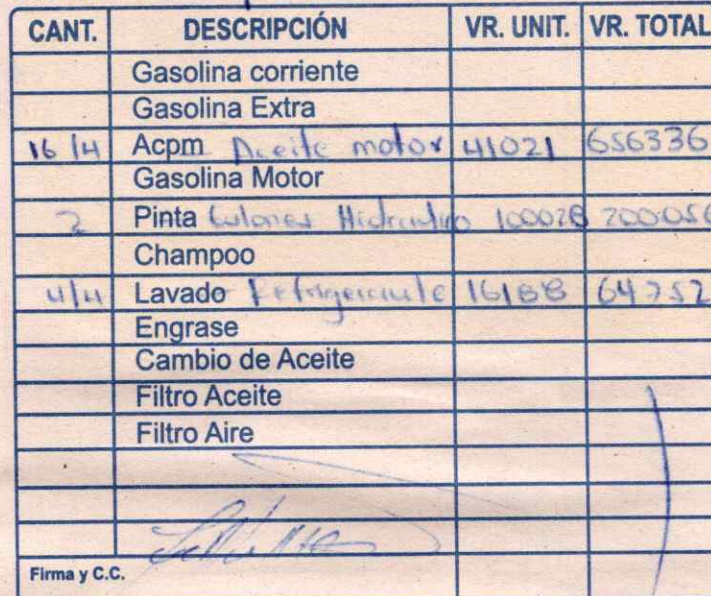 CANT. DESCRIPCIÓN VR. UNIT. VR. TOTAL
Gasolina corriente
Gasolina Extra
16/4 Acpm Aceite motor 41021 656336
Gasolina Motor
2 Pinta Hidraulico 100028 200056
Champoo
4/4 Lavado Refrigerante 16188 64752
Engrase
Cambio de Aceite
Filtro Aceite
Filtro Aire
Firma y C.C.